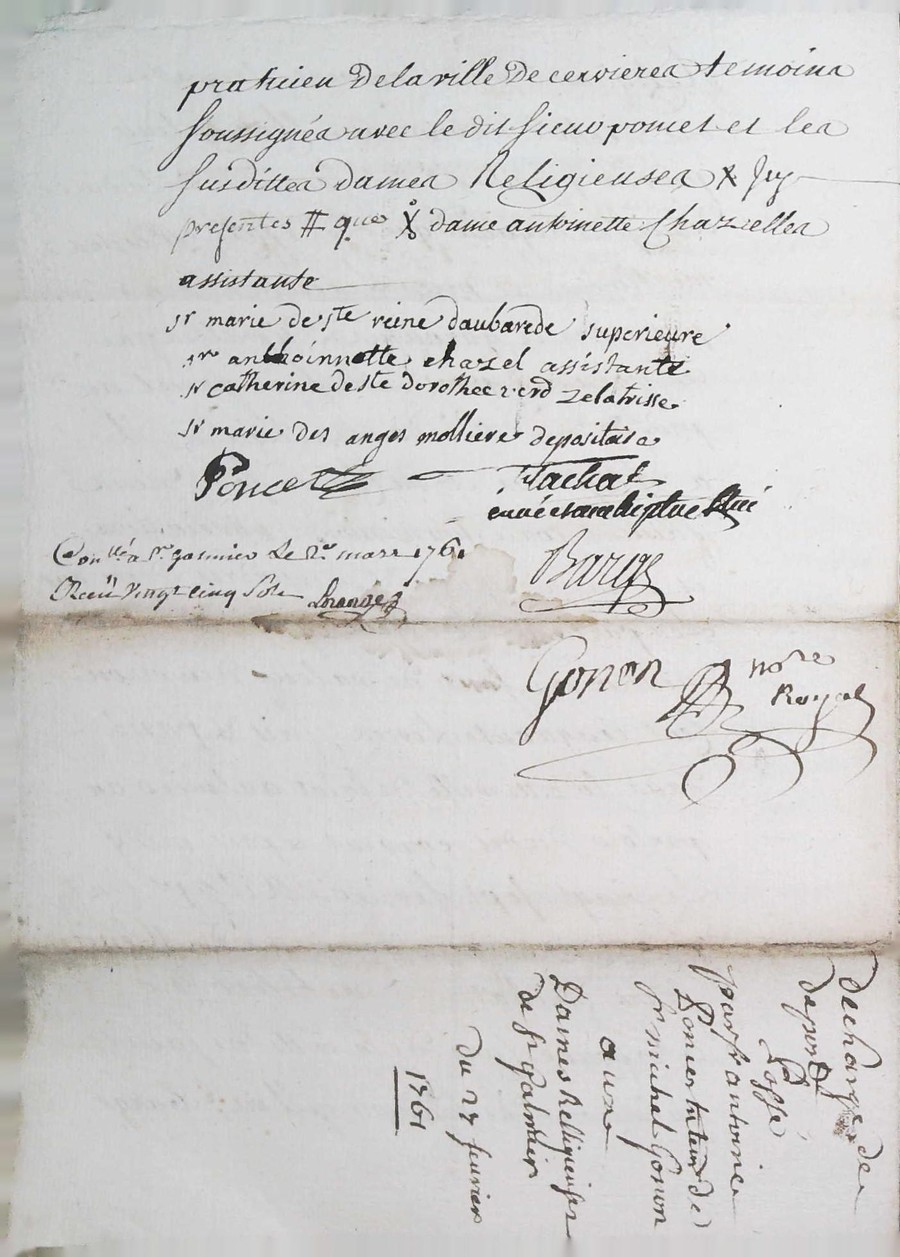 praticien de la ville de cervieres temoins
soussignés avec le dit sieur poncet et les
susdittes dames Religieuses X
presentes # que X dame antoinette Chazelles
assistante
sr marie de ste reine daubarede superieure
sr anthoinnette chazel assistante
sr catherine de ste dorothee verd zelatrisse
sr marie des anges molliere depositaire
Poncet
Tachat
Conllé a St galmier Le 2e mars 1761
Receu vingt cinq sols
Barge
Gonon nore
Royal
decharge de
depont
passé
par sr antoine
Poncet tuteur de
sr michel Gonon
aux
Dames Relligieuses
de st Galmier
du 27 fevrier
1761